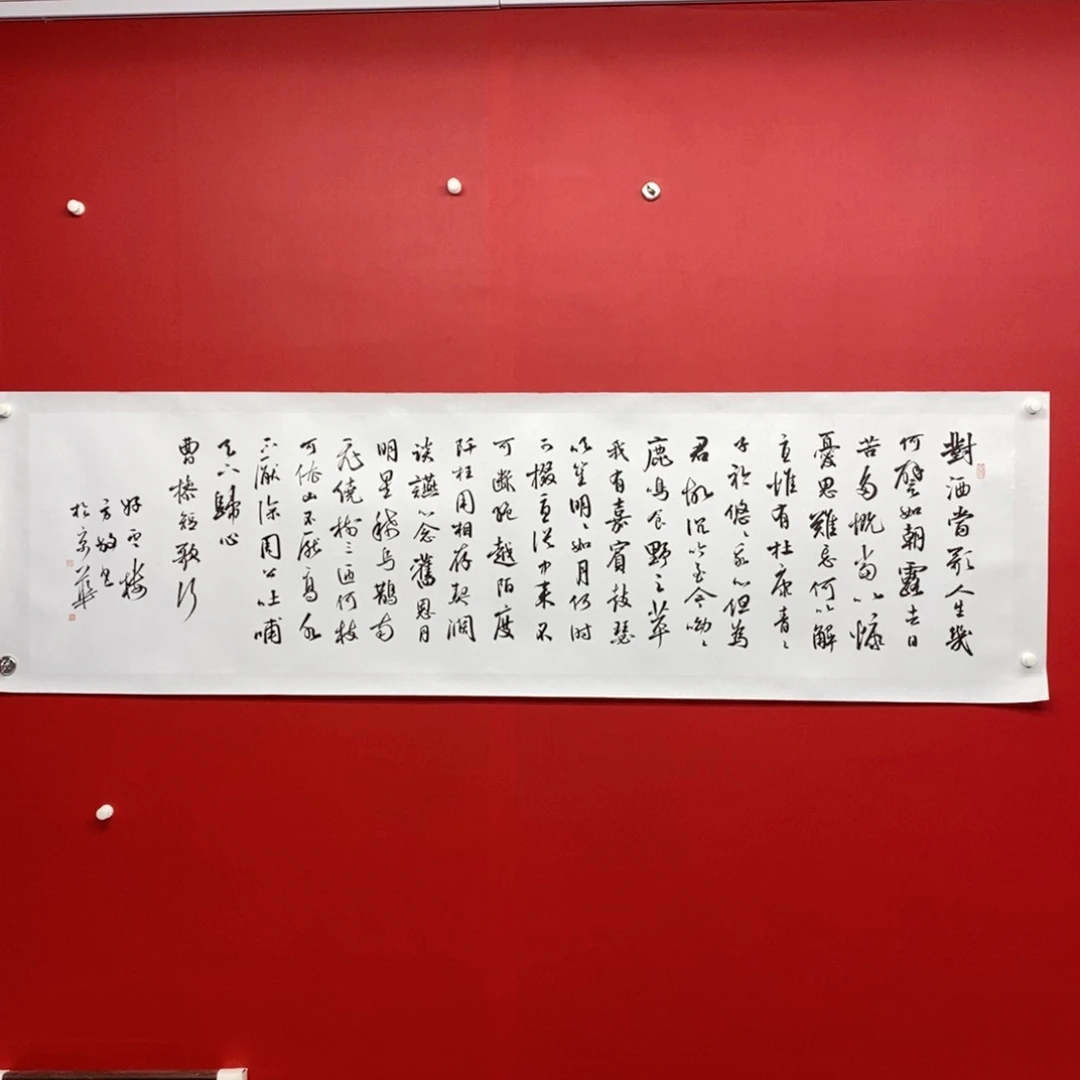 對酒當歌人生幾
何譬如朝露去日
苦多慨當以慷
憂思難忘何以解
憂惟有杜康青〻
子衿悠〻我心但為
君故沉吟至今呦〻
鹿鳴食野之苹
我有嘉賓鼓瑟
吹笙明〻如月何時
可掇憂從中來不
可斷絕越陌度
阡枉用相存契闊
談讌心念舊恩月
明星稀烏鵲南
飛繞樹三匝何枝
可依山不厭高水
不厭深周公吐哺
天下歸心
曹操短歌行
好雲樓
方敏書
於京華